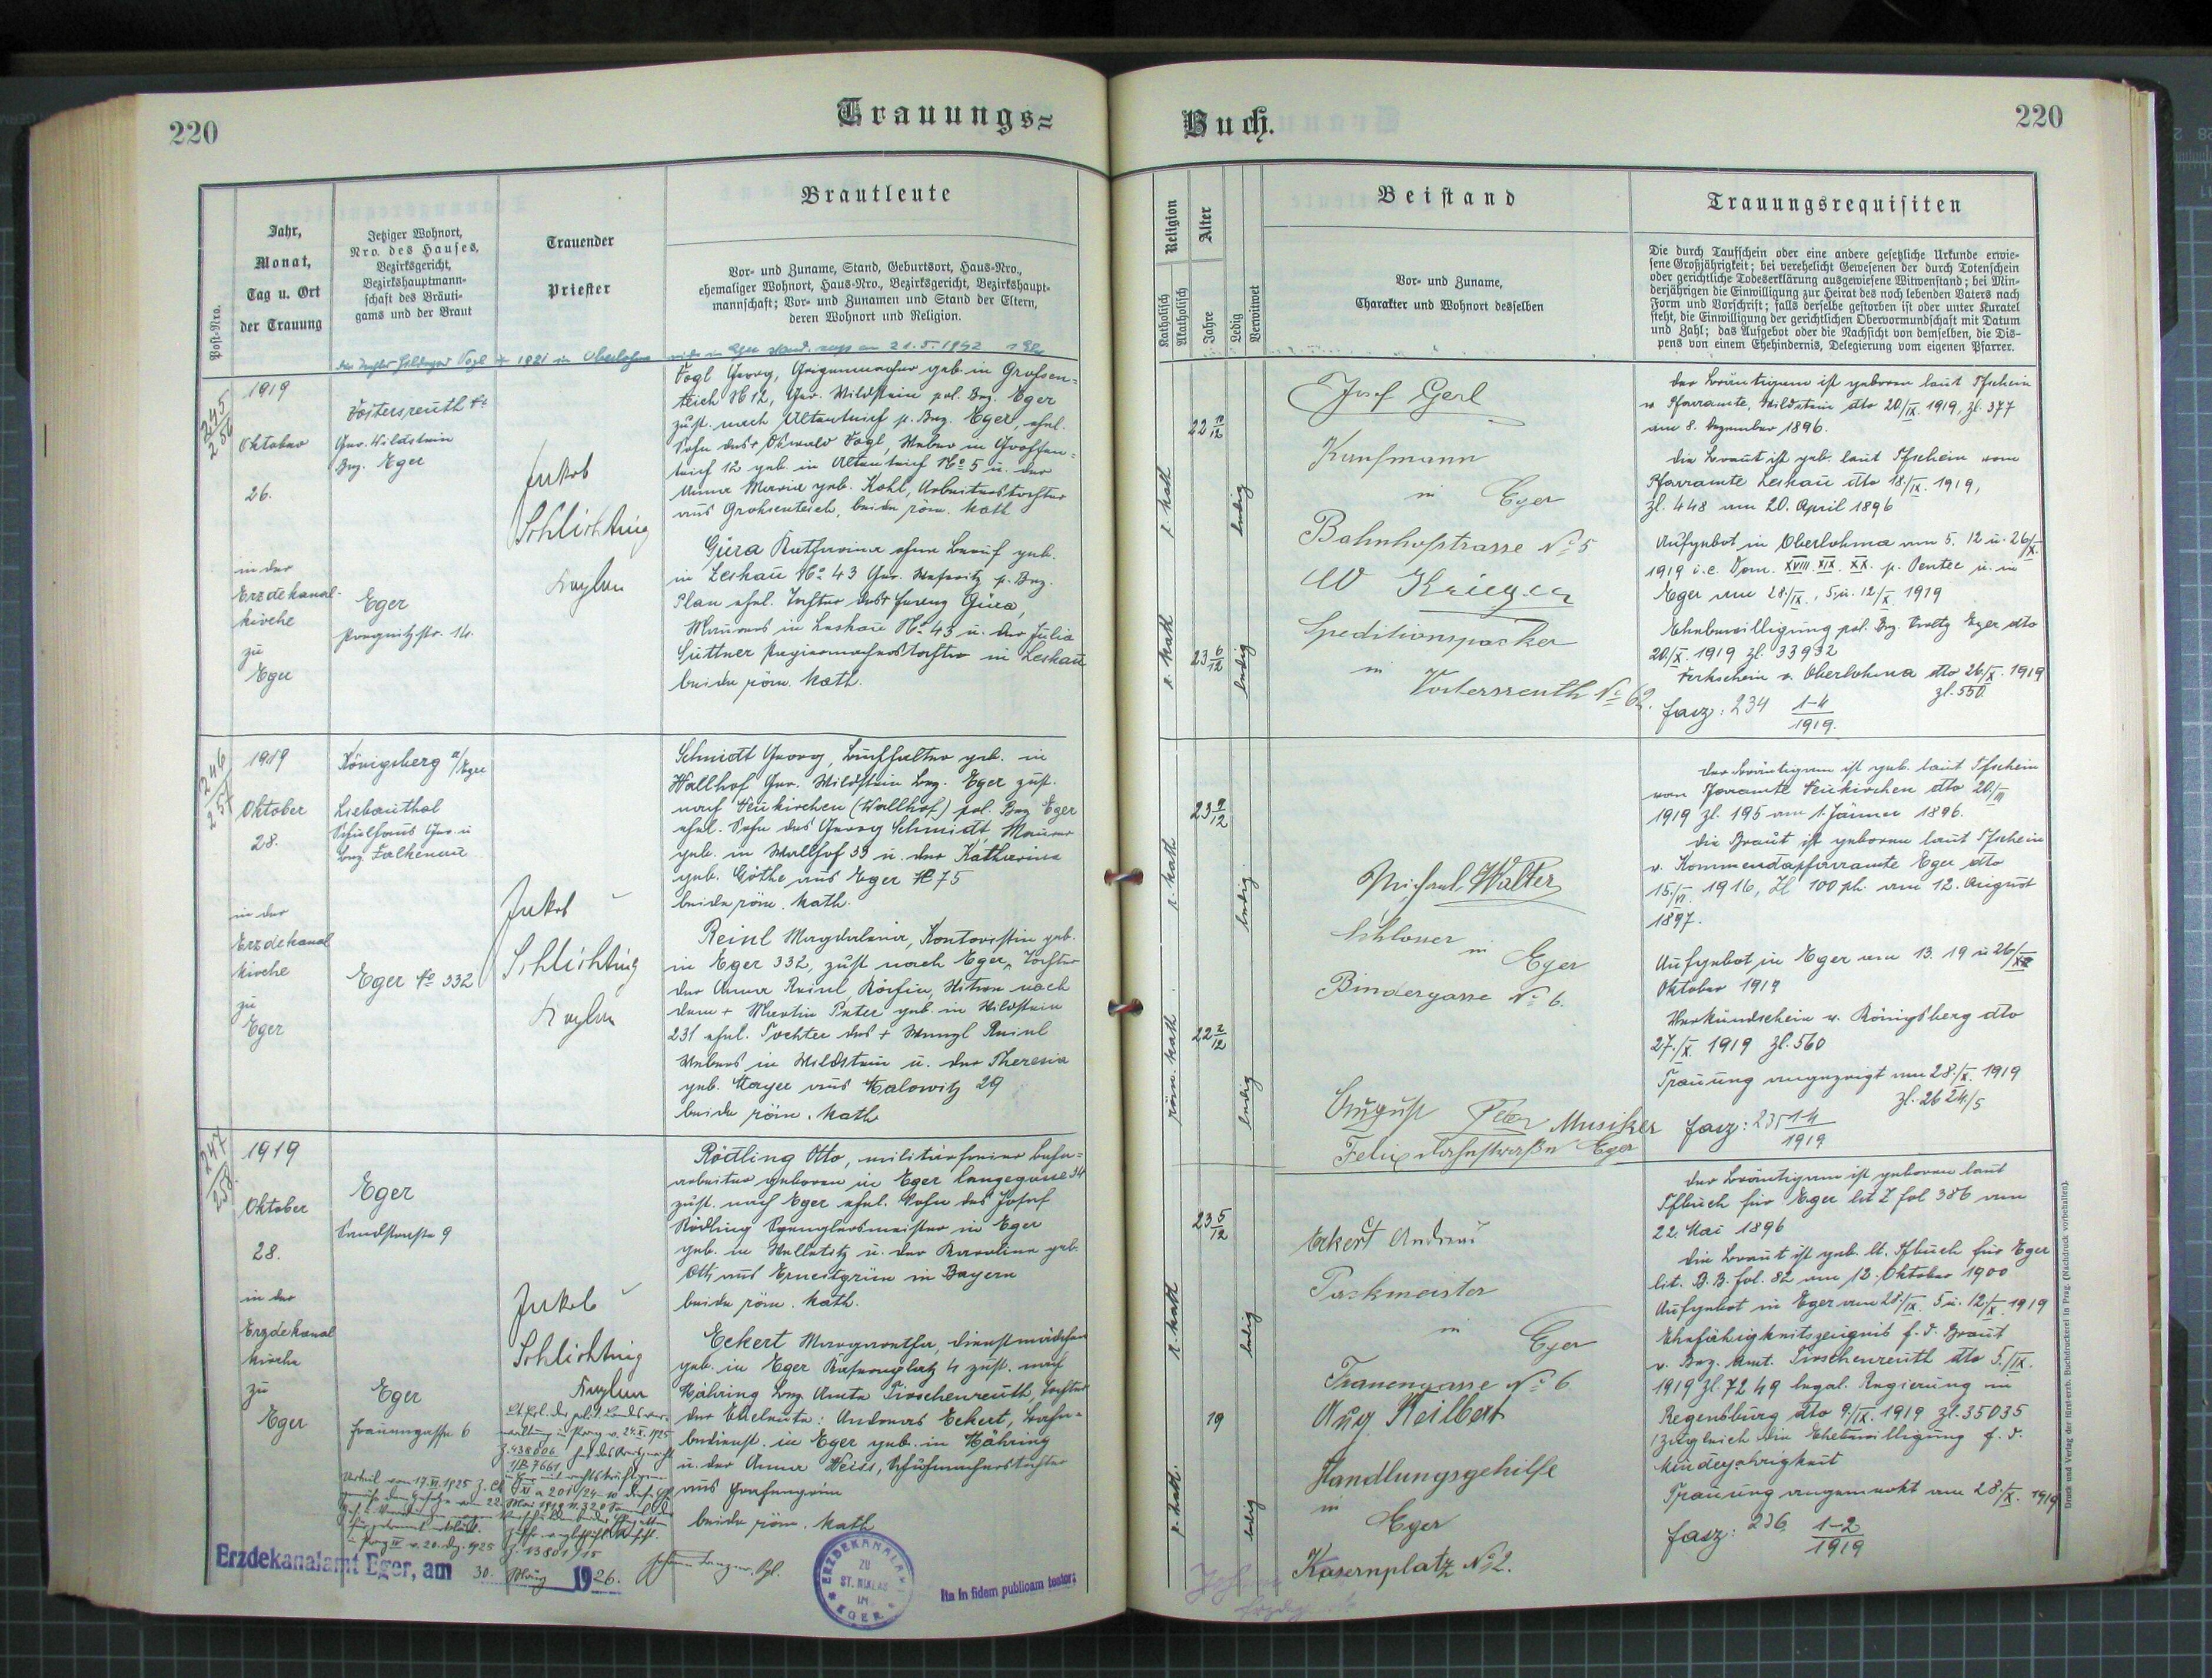 220
Trauungs=
Post-Nro.
Jahr,
Monat,
Tag u. Ort
der Trauung
Jetziger Wohnort,
Nro. des Hauses,
Bezirksgericht,
Bezirkshauptmann-
schaft des Bräuti-
gams und der Braut
Trauender
Priester
Brautleute
Vor- und Zuname, Stand, Geburtsort, Haus-Nro.,
ehemaliger Wohnort, Haus-Nro., Bezirksgericht, Bezirkshaupt-
mannschaft; Vor- und Zunamen und Stand der Eltern,
deren Wohnort und Religion.
Vogl 1921 in Oberlohma am 21.5.1942
245
256
1919
Oktober
26.
in der
Erzdekanal-
kirche
zu
Eger
Ger. Wildstein
Bez. Eger
Eger
14.
Jakob
Schlichting
Kaplan
Vogl Georg, Geigenmacher geb. in Grossen-
teich № 12, Ger. Wildstein pol. Bez. Eger
zust. nach Altenteich p. Bez. Eger, ehel.
Sohn des + Oswald Vogl, Weber in Grossen-
teich 12 geb. in Altenteich № 5 u. der
Anna Maria geb. Kohl, Arbeiterstochter
aus Grossenteich, beide röm. kath
Güra Katharina ohne Beruf geb.
in Leskau № 43 Ger. Weseritz p. Bez.
Plan ehel. Tochter des + Güra,
Maurers in Leskau № 43 u. der Julia
Süttner in Leskau
beide röm. kath.
246
257
1919
Oktober
28.
in der
Erzdekanal
kirche
zu
Eger
Königsberg a/Eger
Liebauthal
Schulhaus Ger. u
Bez. Falkenau
Eger № 332
Jakob
Schlichting
Kaplan
Schmidt Georg, Buchhalter geb. in
Wallhof Ger. Wildstein Bez. Eger zust.
nach Neukirchen (Wallhof) pol. Bez Eger
ehel. Sohn des Georg Schmidt, Maurer
geb. in Wallhof 33 u. der Katharina
geb. Göthe aus Eger № 75
beide röm. kath.
Reinl Magdalena, Kontoristin geb.
in Eger 332, zust nach Eger, Tochter
der Anna Reinl, Köchin, Witwe nach
dem + Martin Peter geb. in Wildstein
231 ehel. Tochter des + Wenzl Reinl
Webers in Wildstein u. der Theresia
geb. Mayer aus 29
beide röm. kath
247
258.
1919
Oktober
28.
in der
Erzdekanal
kirche
zu
Eger
Eger
9
Eger
Frauengasse 6
Jakob
Schlichting
Kaplan
Rödling Otto, militärfreier Bahn-
arbeiter geboren in Eger Langegasse 34
zust. nach Eger ehel. Sohn des Josef
Rödling Spenglermeister in Eger
geb. in u. der Karoline geb.
Ott aus in Bayern
beide röm. kath.
Eckert Margaretha, Dienstmädchen
geb. in Eger 4 zust. nach
Mähring Bez. Amts Tirschenreuth, Tochter
der Eheleute: Andreas Eckert, Bahn-
bedienst. in Eger geb. in Mähring
u. der Anna Weiss, Schuhmacherstochter
aus
beide röm. kath
Erzdekanalamt Eger, am 30. 1926.
ERZDEKANALAMT
ZU
ST. NIKLAS
IN
EGER
Ita in fidem publicam testor:
Buch.
220
Religion
Katholisch
Akatholisch
Alter
Jahre
Ledig
Verwitwet
Beistand
Vor- und Zuname,
Charakter und Wohnort desselben
Trauungsrequisiten
Die durch Taufschein oder eine andere gesetzliche Urkunde erwie-
sene Großjährigkeit; bei verehelicht Gewesenen der durch Totenschein
oder gerichtliche Todeserklärung ausgewiesene Witwenstand; bei Min-
derjährigen die Einwilligung zur Heirat des noch lebenden Vaters nach
Form und Vorschrift; falls derselbe gestorben ist oder unter Kuratel
steht, die Einwilligung der gerichtlichen Obervormundschaft mit Datum
und Zahl; das Aufgebot oder die Nachsicht von demselben, die Dis-
pens von einem Ehehindernis, Delegierung vom eigenen Pfarrer.
r. kath
22 10/12
ledig
r. kath
23 6/12
ledig
Josef Gerl
Kaufmann
in Eger
Bahnhofstrasse № 5
W Krieger
Speditionspacker
in
Voitersreuth № 62.
der Bräutigam ist geboren laut Tfschein
v. Pfarramte, Wildstein dto 20/IX. 1919, zl. 377
am 8. Dezember 1896.
die Braut ist geb. laut Tfschein vom
Pfarramte Leskau dto 18./IX. 1919,
zl. 448 am 20. April 1896
Aufgebot in Oberlohma am 5. 12 u. 26/X.
1919 i.e. Dom. XVIII. XIX. XX. p. Pentec u. in
Eger am 28./IX., 5. u. 12/X 1919
Ehebewilligung pol. Bez. Eger dto
20/X. 1919 zl. 33932
v. Oberlohma dto 26/X. 1919
zl. 550.
fasz: 234 1-4/1919.
r. kath
23 9/12
ledig
röm. kath
22 2/12
ledig
Michael Walter
Schlosser in
Eger
Bindergasse № 6.
August Peter Musiker
Felix Eger
der Bräutigam ist geb. laut Tfschein
vom Pfarramte Neukirchen dto 20/
1919 zl. 195 am 1. Jänner 1896.
die Braut ist geboren laut Tfschein
v. Kommendapfarramte Eger dto
15./VI. 1916, Zl 100 ph. am 12. August
1897.
Aufgebot in Eger am 13. 19 u 26/X
Oktober 1919
Verkündschein v. Königsberg dto
27./X. 1919 zl. 560
Trauung angezeigt am 28./X. 1919
zl. 2624/5
fasz: 235 1-4/1919
r. kath
23 5/12
ledig
r. kath.
19
ledig
Eckert Andreas
Packmeister
in Eger
Frauengasse № 6
Aug Keilbert
Handlungsgehilfe
in
Eger
Kasernplatz № 2.
der Bräutigam ist geboren laut
Tfbuch für Eger lit Z fol 386 am
22. Mai 1896
die Braut ist geb. lt. Tfbuch für Eger
lit. B.B. fol. 82 am 12. Oktober 1900
Aufgebot in Eger am 28./IX. 5 u. 12./X. 1919
Ehefähigkeitszeugnis f. d. Braut
v. Bez. Amt. Tirschenreuth dto 5./IX.
1919 zl. 7249 legal. Regierung in
Regensburg dto 9/IX. 1919 zl. 35035
/zugleich die Ehebewilligung f. d.
Minderjährigkeit
Trauung angemerkt am 28./X. 1919
fasz: 236 1-2/1919
Druck und Verlag der fürst-erzb. Buchdruckerei in Prag. (Nachdruck vorbehalten).